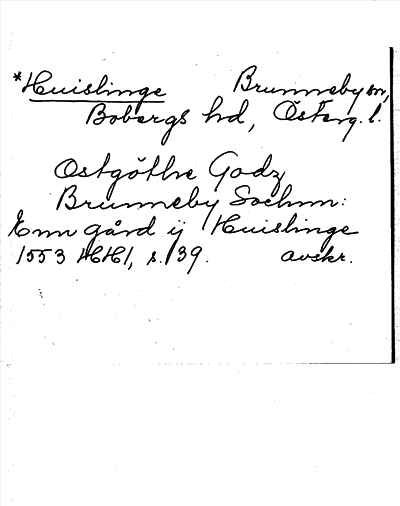 *Huislinge Brunneby sn,
Bobergs hd, Österg. l.
Östgöthe Godz
Brunneby Sochnn:
Enn gård ij Huislinge
1553 HH1, s. 139. avskr.